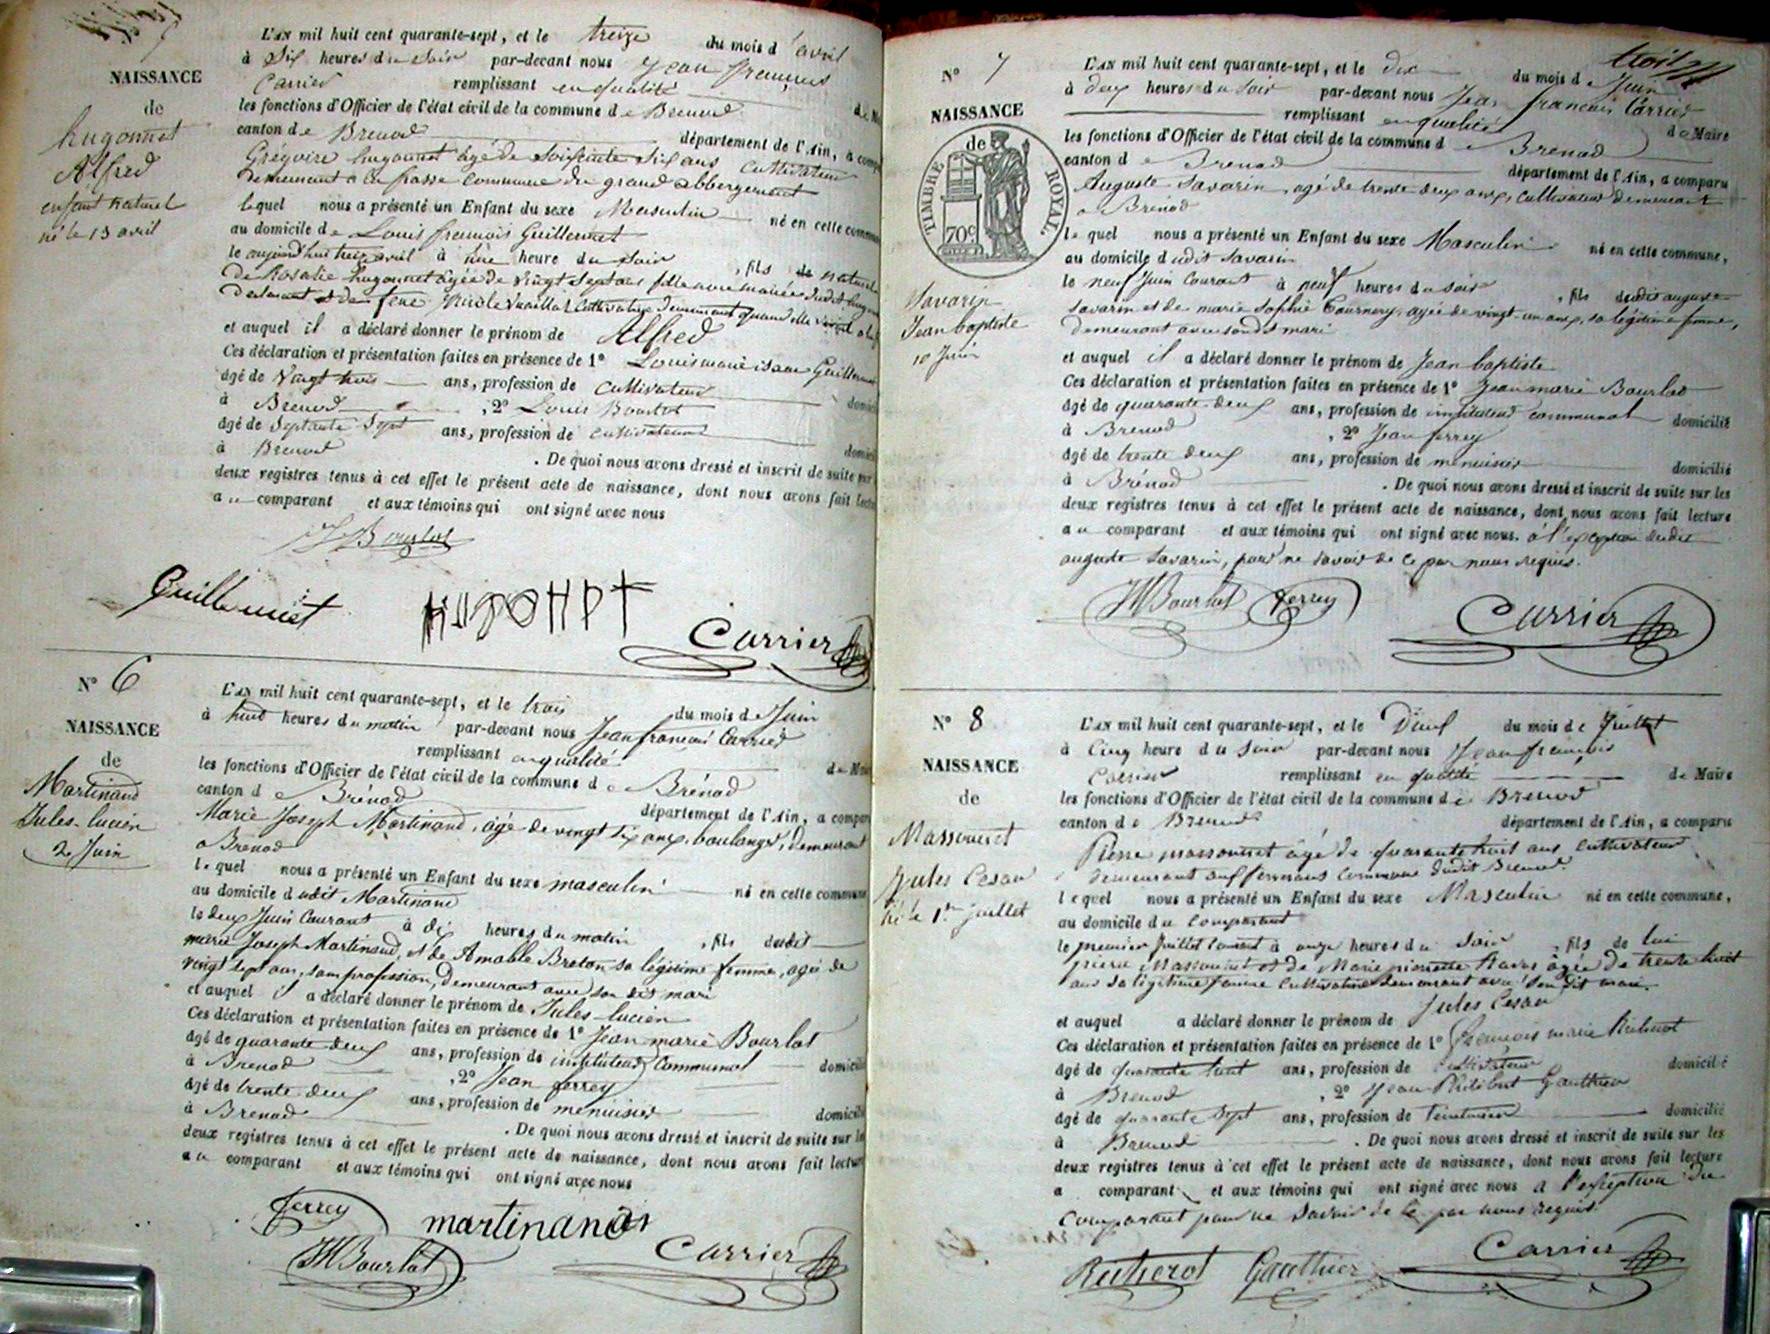 N° 5
NAISSANCE
de
hugonnet
Alfred
enfant naturel
né le 13 avril
L'AN mil huit cent quarante-sept, et le treize du mois d'avril
à Six heures du Soir par-devant nous Jean françois
Carrier remplissant en qualité de
les fonctions d'Officier de l'état civil de la commune de Brenod
canton de Brenod département de l'Ain, a comp
Grégoire hugonnet âgé de Soixante Six ans Cultivateur
demeurant a la passe commune du grand abbergement
lequel nous a présenté un Enfant du sexe Masculin né en cette commune
au domicile de Louis françois Guillermet
le aujourd'hui treize avril à une heure du Soir, fils de naturel
de Rosalie hugonnet agée de vingt Sept ans fille non mariée dudit hugonnet
declarant et de feue Nicole Vuaillat Cultivatrice demeurant quand elle vivait a la
et auquel il a déclaré donner le prénom de Alfred
Ces déclaration et présentation faites en présence de 1° Louis marie isaac Guillermet
âgé de Vingt trois ans, profession de Cultivateur
à Brenod, 2° Louis Bourlot domici
âgé de Septante Sept ans, profession de cultivateur
à Brenod domici
. De quoi nous avons dressé et inscrit de suite sur
deux registres tenus à cet effet le présent acte de naissance, dont nous avons fait lecture
au comparant et aux témoins qui ont signé avec nous
Bourlot
Guillermet HUGONET Carrier
N° 6
NAISSANCE
de
Martinand
Jules-lucien
2 Juin
L'AN mil huit cent quarante-sept, et le trois du mois de Juin
à huit heures du matin par-devant nous Jean françois Carrier
remplissant en qualité de Maire
les fonctions d'Officier de l'état civil de la commune de Brénod
canton de Brénod département de l'Ain, a comparu
Marie Joseph Martinand, agé de vingt six ans, boulanger, demeurant
a Brenod
lequel nous a présenté un Enfant du sexe masculin né en cette commune
au domicile dudit Martinand
le deux Juin Courant à dix heures du matin, fils dudit
marie Joseph Martinand, et de Amable Breton sa légitime femme, agée de
vingt sept ans, sans profession, demeurant avec son dit mari
et auquel il a déclaré donner le prénom de Jules-lucien
Ces déclaration et présentation faites en présence de 1° Jean marie Bourlot
âgé de quarante deux ans, profession de instituteur Communal domicilié
à Brenod, 2° Jean ferrey
âgé de trente deux ans, profession de menuisier domicilié
à Brenod . De quoi nous avons dressé et inscrit de suite sur les
deux registres tenus à cet effet le présent acte de naissance, dont nous avons fait lecture
au comparant et aux témoins qui ont signé avec nous
ferrey martinand
JMBourlot Carrier
N° 7
NAISSANCE
de
TIMBRE ROYAL.
70c
Savarin
Jean baptiste
10 Juin
trois
L'AN mil huit cent quarante-sept, et le dix du mois de Juin
à deux heures du soir par-devant nous Jean françois Carrier
remplissant en qualité de Maire
les fonctions d'Officier de l'état civil de la commune de Brenod
canton de Brenod département de l'Ain, a comparu
Auguste Savarin, agé de trente deux ans, cultivateur demeurant
a Brénod
lequel nous a présenté un Enfant du sexe Masculin né en cette commune,
au domicile dudit Savarin
le neuf Juin courant à neuf heures du soir, fils dudit auguste
Savarin et de marie Sophie Tournery, agée de vingt un ans, sa légitime femme,
demeurant avec sondit mari
et auquel il a déclaré donner le prénom de Jean baptiste
Ces déclaration et présentation faites en présence de 1° Jean marie Bourlot
âgé de quarante-deux ans, profession de instituteur communal domicilié
à Brenod, 2° Jean ferrey
âgé de trente deux ans, profession de menuisier domicilié
à Brénod . De quoi nous avons dressé et inscrit de suite sur les
deux registres tenus à cet effet le présent acte de naissance, dont nous avons fait lecture
au comparant et aux témoins qui ont signé avec nous. à l'exception dudit
auguste Savarin, pour ne savoir de ce par nous requis.
JMBourlot ferrey Carrier
N° 8
NAISSANCE
de
Massonnet
Jules Cesar
né le 1er juillet
L'AN mil huit cent quarante-sept, et le Deux du mois de Juillet
à Cinq heure du Soir par-devant nous Jean françois
Carrier remplissant en qualité de Maire
les fonctions d'Officier de l'état civil de la commune de Brenod
canton de Brenod département de l'Ain, a comparu
Pierre massonnet âgé de quarante huit ans Cultivateur
demeurant aux ferrerans commune dudit Brenod.
lequel nous a présenté un Enfant du sexe Masculin né en cette commune,
au domicile du Comparant
le premier Juillet courant à onze heures du Soir, fils de lui
pierre Massonnet et de Marie pierrette Ravas agée de trente huit
ans sa légitime femme Cultivatrice demeurant avec Son dit mari.
et auquel a déclaré donner le prénom de Jules Cesar
Ces déclaration et présentation faites en présence de 1° françois marie Ruherot
âgé de quarante huit ans, profession de Cultivateur domicilié
à Brenod, 2° Jean Philibert Gauthier
âgé de quarante Sept ans, profession de Teinturier domicilié
à Brenod . De quoi nous avons dressé et inscrit de suite sur les
deux registres tenus à cet effet le présent acte de naissance, dont nous avons fait lecture
a comparant et aux témoins qui ont signé avec nous a l'exception du
Comparant pour ne Savoir de ce par nous requis.
Ruherot Gauthier Carrier